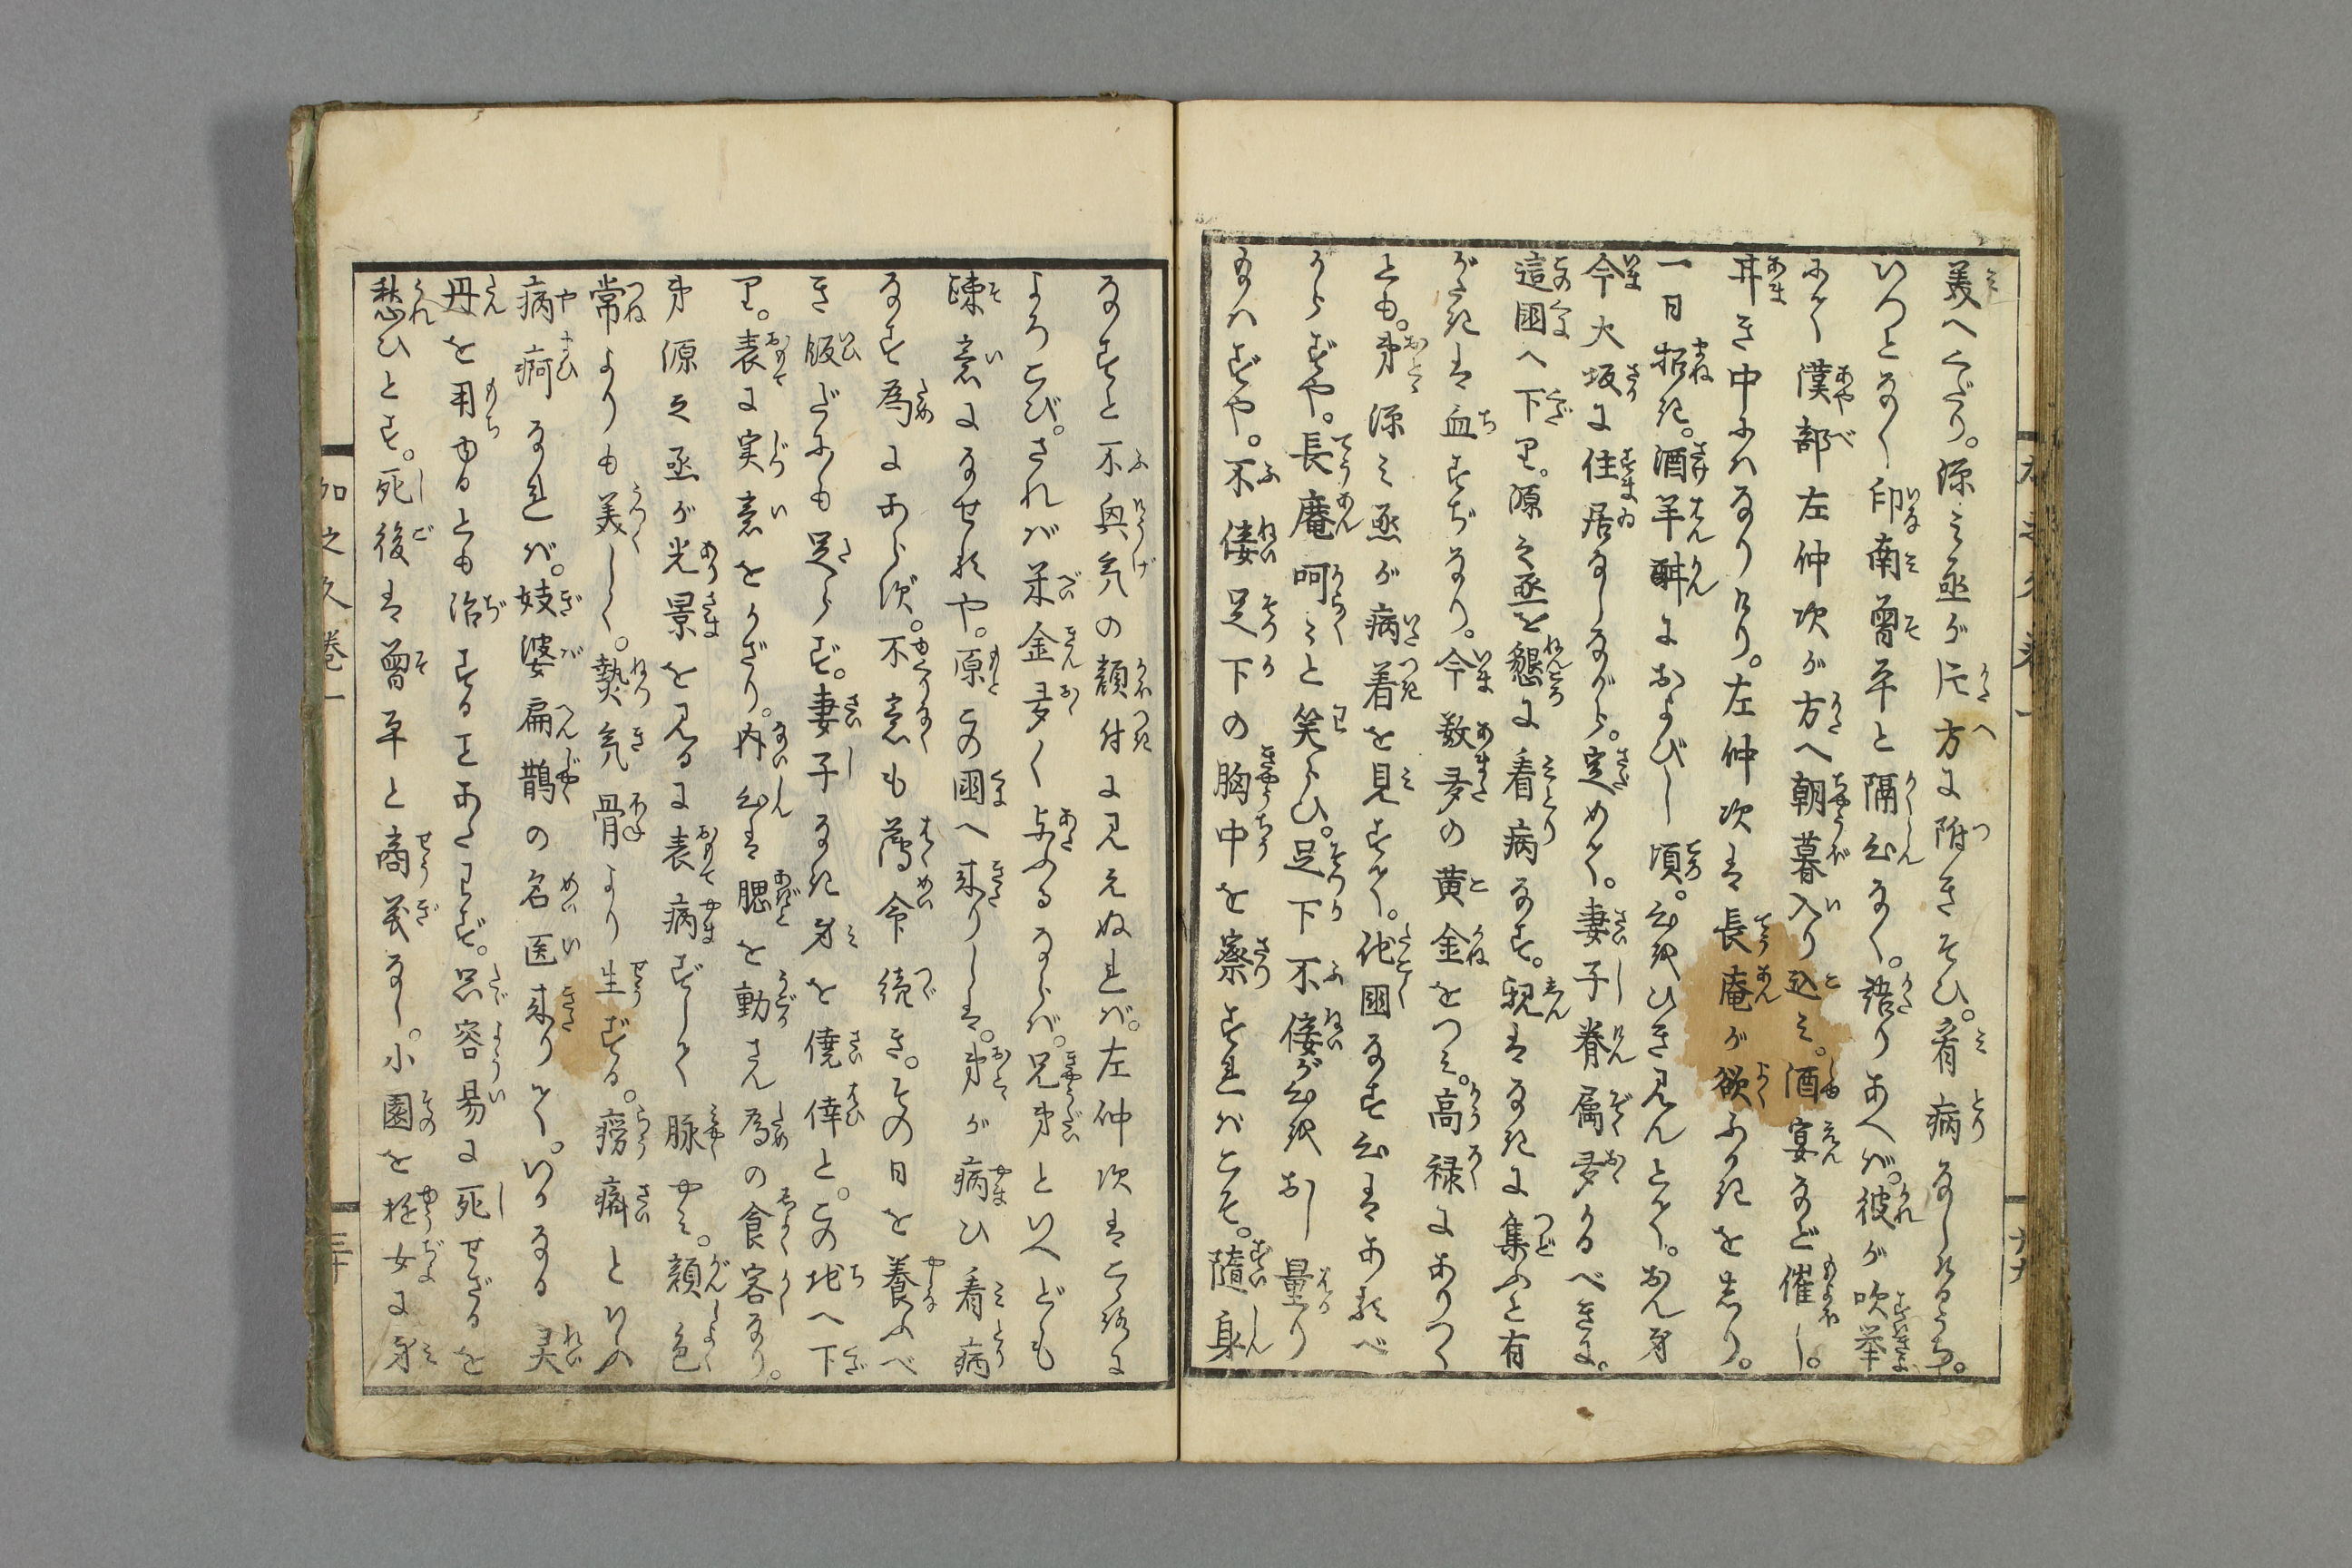 美へくだり。源之丞が片方に附きそひ。看病なしけるうち。
いつとなく印南曽平と隔心なく。語りあへば。彼が吹挙
にて漢部左仲次が方へ朝暮入り込み。酒宴など催し。
丼き中にはなりけり。左仲次は長庵が欲ふかきを知り。
一日招き。酒半酣におよびし頃。心を引き見んとて。おん身
今大坂に住居なしながら。定めて。妻子眷属多かるべきに。
這国へ下り。源之丞を懇に看病なす。親はなきに集ふと有
がたきは血すぢなり。今数多の黄金をつみ。高禄にありつく
とも。弟源之丞が病着を見すて。他国なす心はあるべ
からずや。長庵呵々と笑らひ。足下不佞が心をおし量り
給はずや。不佞足下の胸中を察すればこそ。随身
なすと不興気の顔付に見えぬれば。左仲次はこゝろに
よろこび。されば米金多く与ふるならば。兄弟といへども
疎意になせるや。原この国へ来りしは。弟が病ひ看病
なす為にあらず。不意も薄命続き。その日を養ふべ
き飯だにも足らず。妻子なき身を僥倖と。この地へ下
り。表に実意をかざり。内心は腮を動さん為の食客なり。
弟源之丞が光景を見るに表病ずして脉やみ。顔色
常よりも美しく。熱気骨より生ずる。癆瘵といふ
病痾なれば。妓婆扁鵲の名医来りて。いかなる灵
丹を用ゆるとも治することあたはず。只容易に死せざるを
愁ひとす。死後は曽平と商義なし。小園を娃女に身
加之久巻一
三十